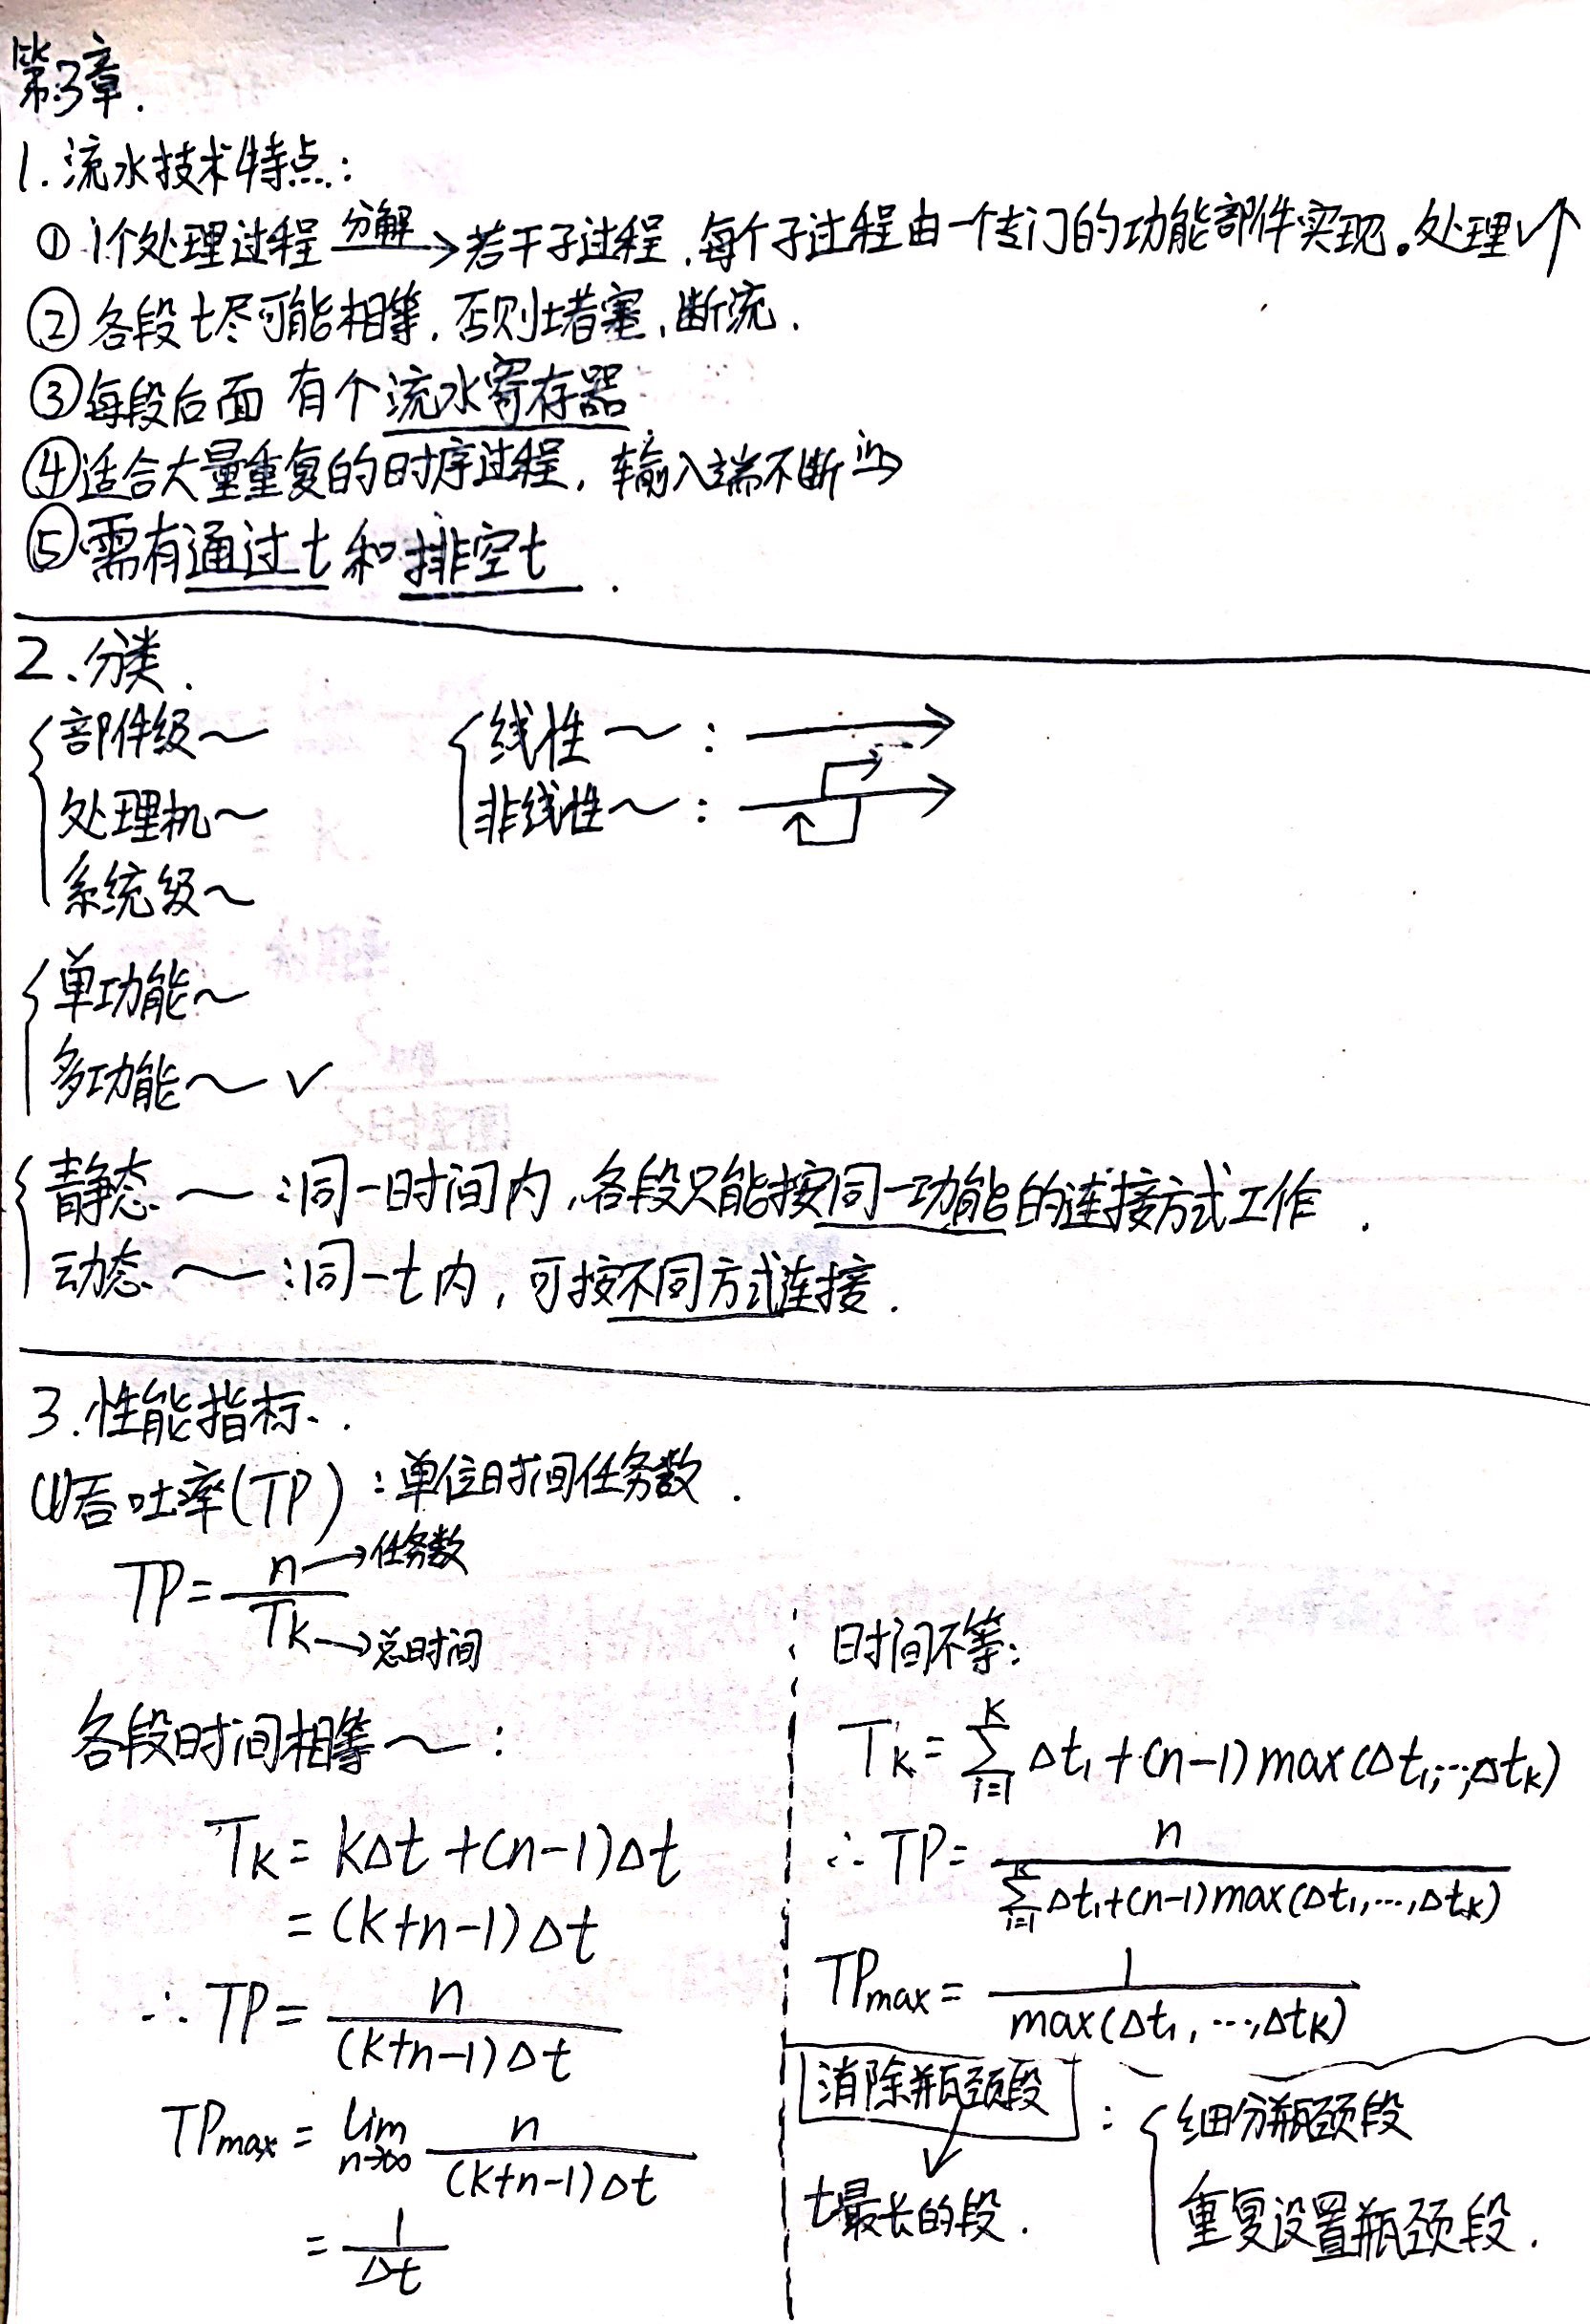 第3章.
1. 流水技术特点:
① 1个处理过程 分解→ 若干子过程,每个子过程由一个专门的功能部件实现。处理v↑
② 各段t尽可能相等,否则堵塞,断流.
③ 每段后面有个流水寄存器
④ 适合大量重复的时序过程,输入端不断
⑤ 需有通过t和排空t.
2、分类.
部件级~
处理机~
系统级~
线性~:
非线性~:
单功能~
多功能~ ✓
静态~:同一时间内,各段只能按同一功能的连接方式工作.
动态~:同一t内,可按不同方式连接.
3.性能指标.
(1)吞吐率(TP):单位时间任务数.
TP = n/Tk
n→任务数
Tk→总时间
各段时间相等~:
Tk = kΔt + (n-1)Δt
= (k+n-1)Δt
∴ TP = n/((k+n-1)Δt)
TPmax = lim n→∞ n/((k+n-1)Δt)
= 1/Δt
时间不等:
Tk = ∑_{i=1}^{k} Δt₁ + (n-1)max(Δt₁,…,Δtk)
∴ TP = n/(∑_{i=1}^{k} Δt₁+(n-1)max(Δt₁,…,Δtk))
TPmax = 1/max(Δt₁,…,Δtk)
消除瓶颈段:
t最长的段.
细分瓶颈段
重复设置瓶颈段.